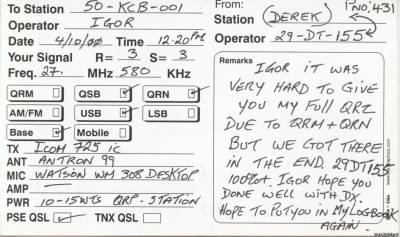 To Station 50-KCB-001
Operator IGOR
Date 4/10/00 Time 12:20pm
Your Signal R= 3 S= 3
Freq. 27. MHz 580 KHz
QRM QSB QRN
AM/FM USB LSB
Base Mobile
TX ICOM 725 ic
ANT ANTRON 99
MIC WATSON WM 308 DESKTOP
AMP
PWR 10-15WTS QRP-STATION
PSE QSL TNX QSL
From: No. 431
Station (DEREK)
Operator 29-DT-155
Remarks IGOR IT WAS
VERY HARD TO GIVE
YOU MY FULL QRZ
DUE TO QRM + QRN
BUT WE GOT THERE
IN THE END. 29DT155
100%. IGOR HOPE YOU
DONE WELL WITH DX.
HOPE TO PUT YOU IN MY LOGBOOK
AGAIN